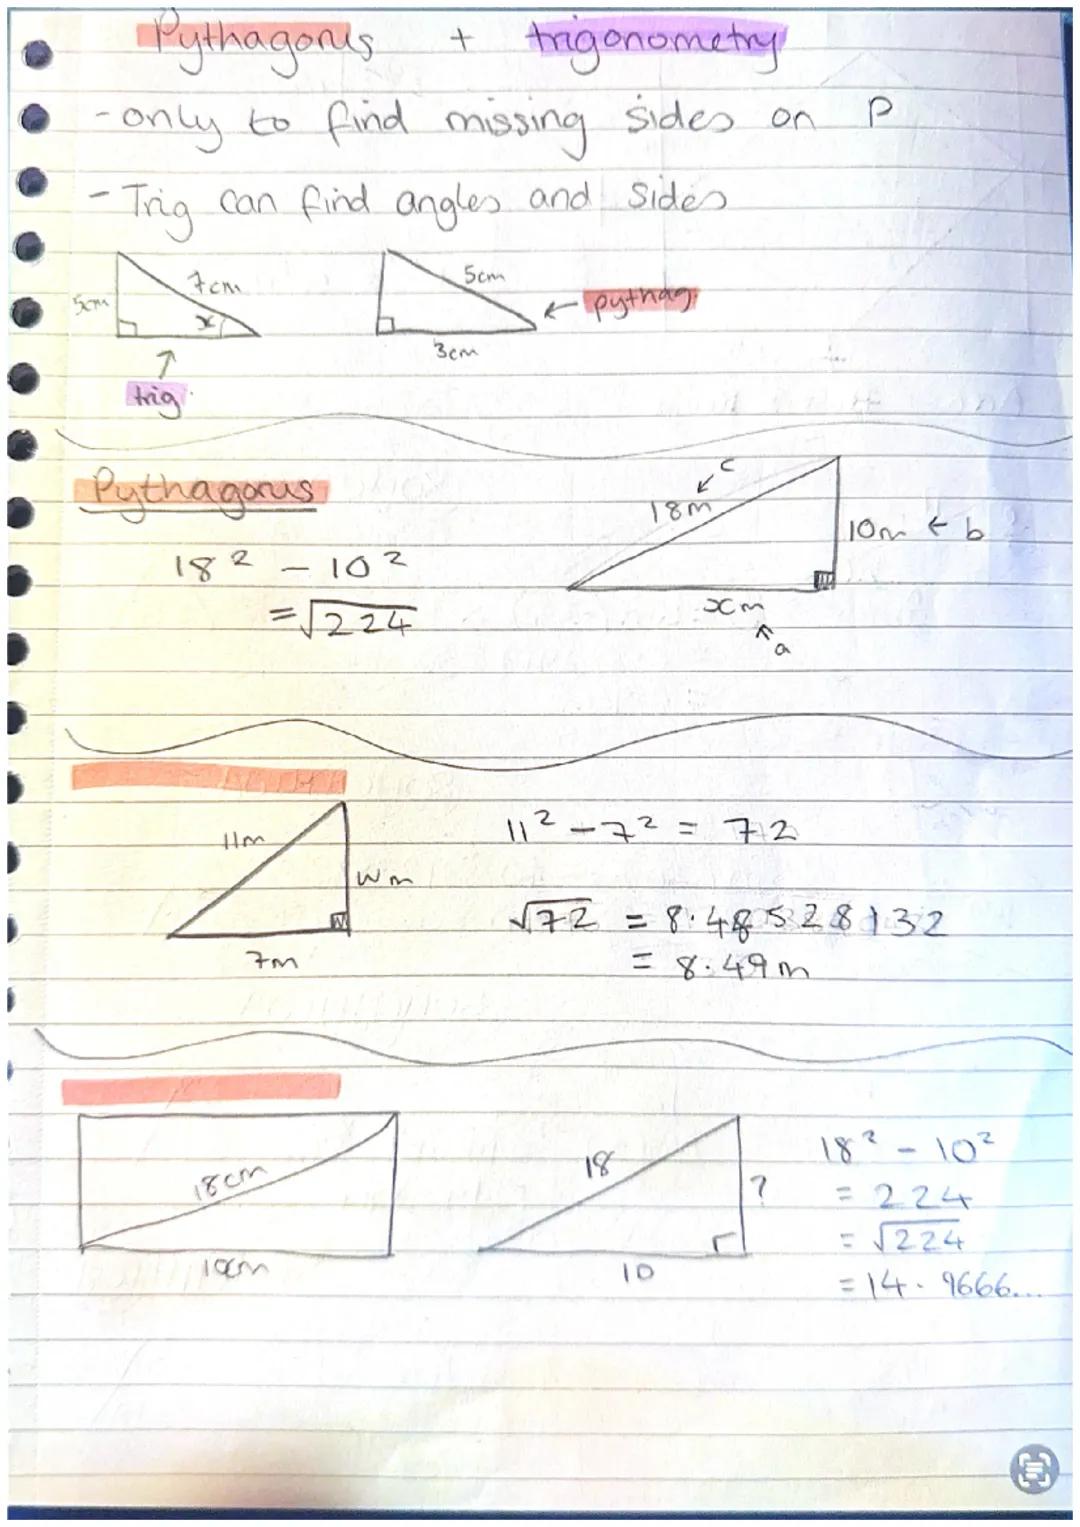 Pythagorus + trigonometry
- only to find missing sides on P
- Trig can find angles and sides
5cm 7cm x
5cm 3cm ← pythag.
trig
Pythagorus
18² - 10²
= √224
c
18m
10m ← b
xm
a
11m
Wm
7m
11² - 7² = 72
√72 = 8.48528132
= 8.49m
18cm
10cm
18
?
10
18² - 10²
= 224
= √224
= 14.9666...